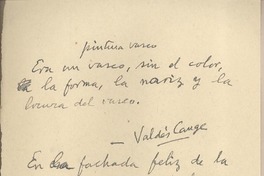 pintura vasco
Era un vasco, sin el color,
la forma, la nariz y la
locura del vasco.
— Valdés Cange
En fachada feliz de la